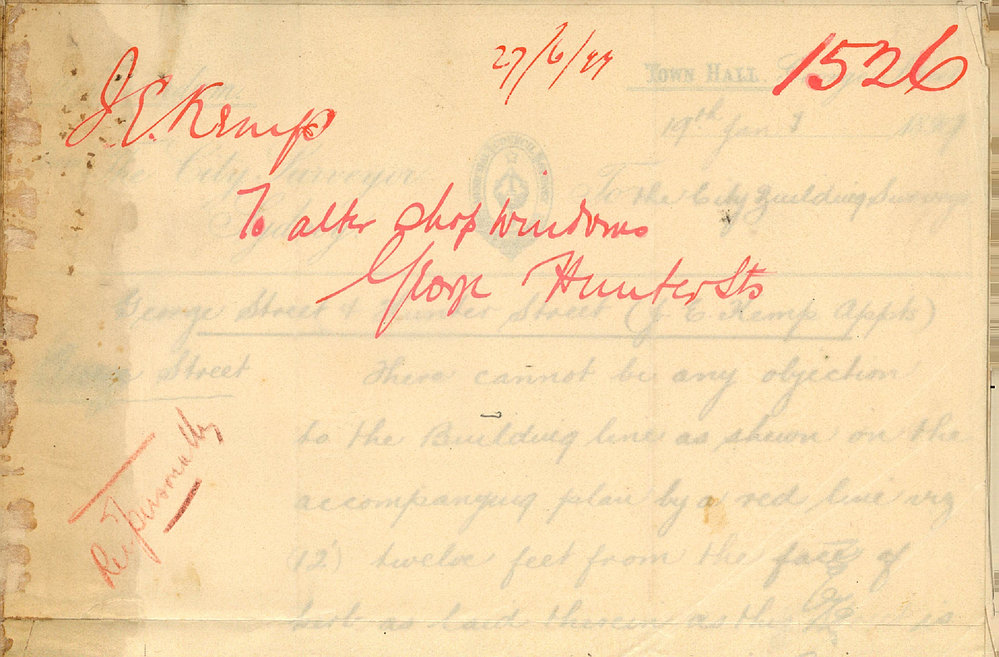 27/6/99
1526
J E Kemp
To alter shop windows
George Hunter Sts
TOWN HALL
19th
The City Surveyor
Sydney
To the City Building Surveyor
George Street & Hunter Street (J E Kemp Appts)
George Street
There cannot be any objection
to the Building line as shewn on the
accompanying plan by a red line viz
(12') twelve feet from the face of
kerb as laid therein as the is